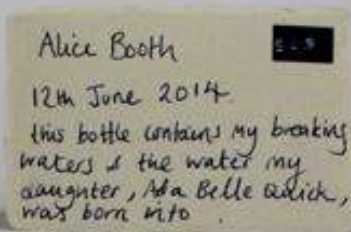 Alice Booth
12th June 2014
this bottle contains my breaking
waters & the water my
daughter, Ada Belle Quick,
was born into.